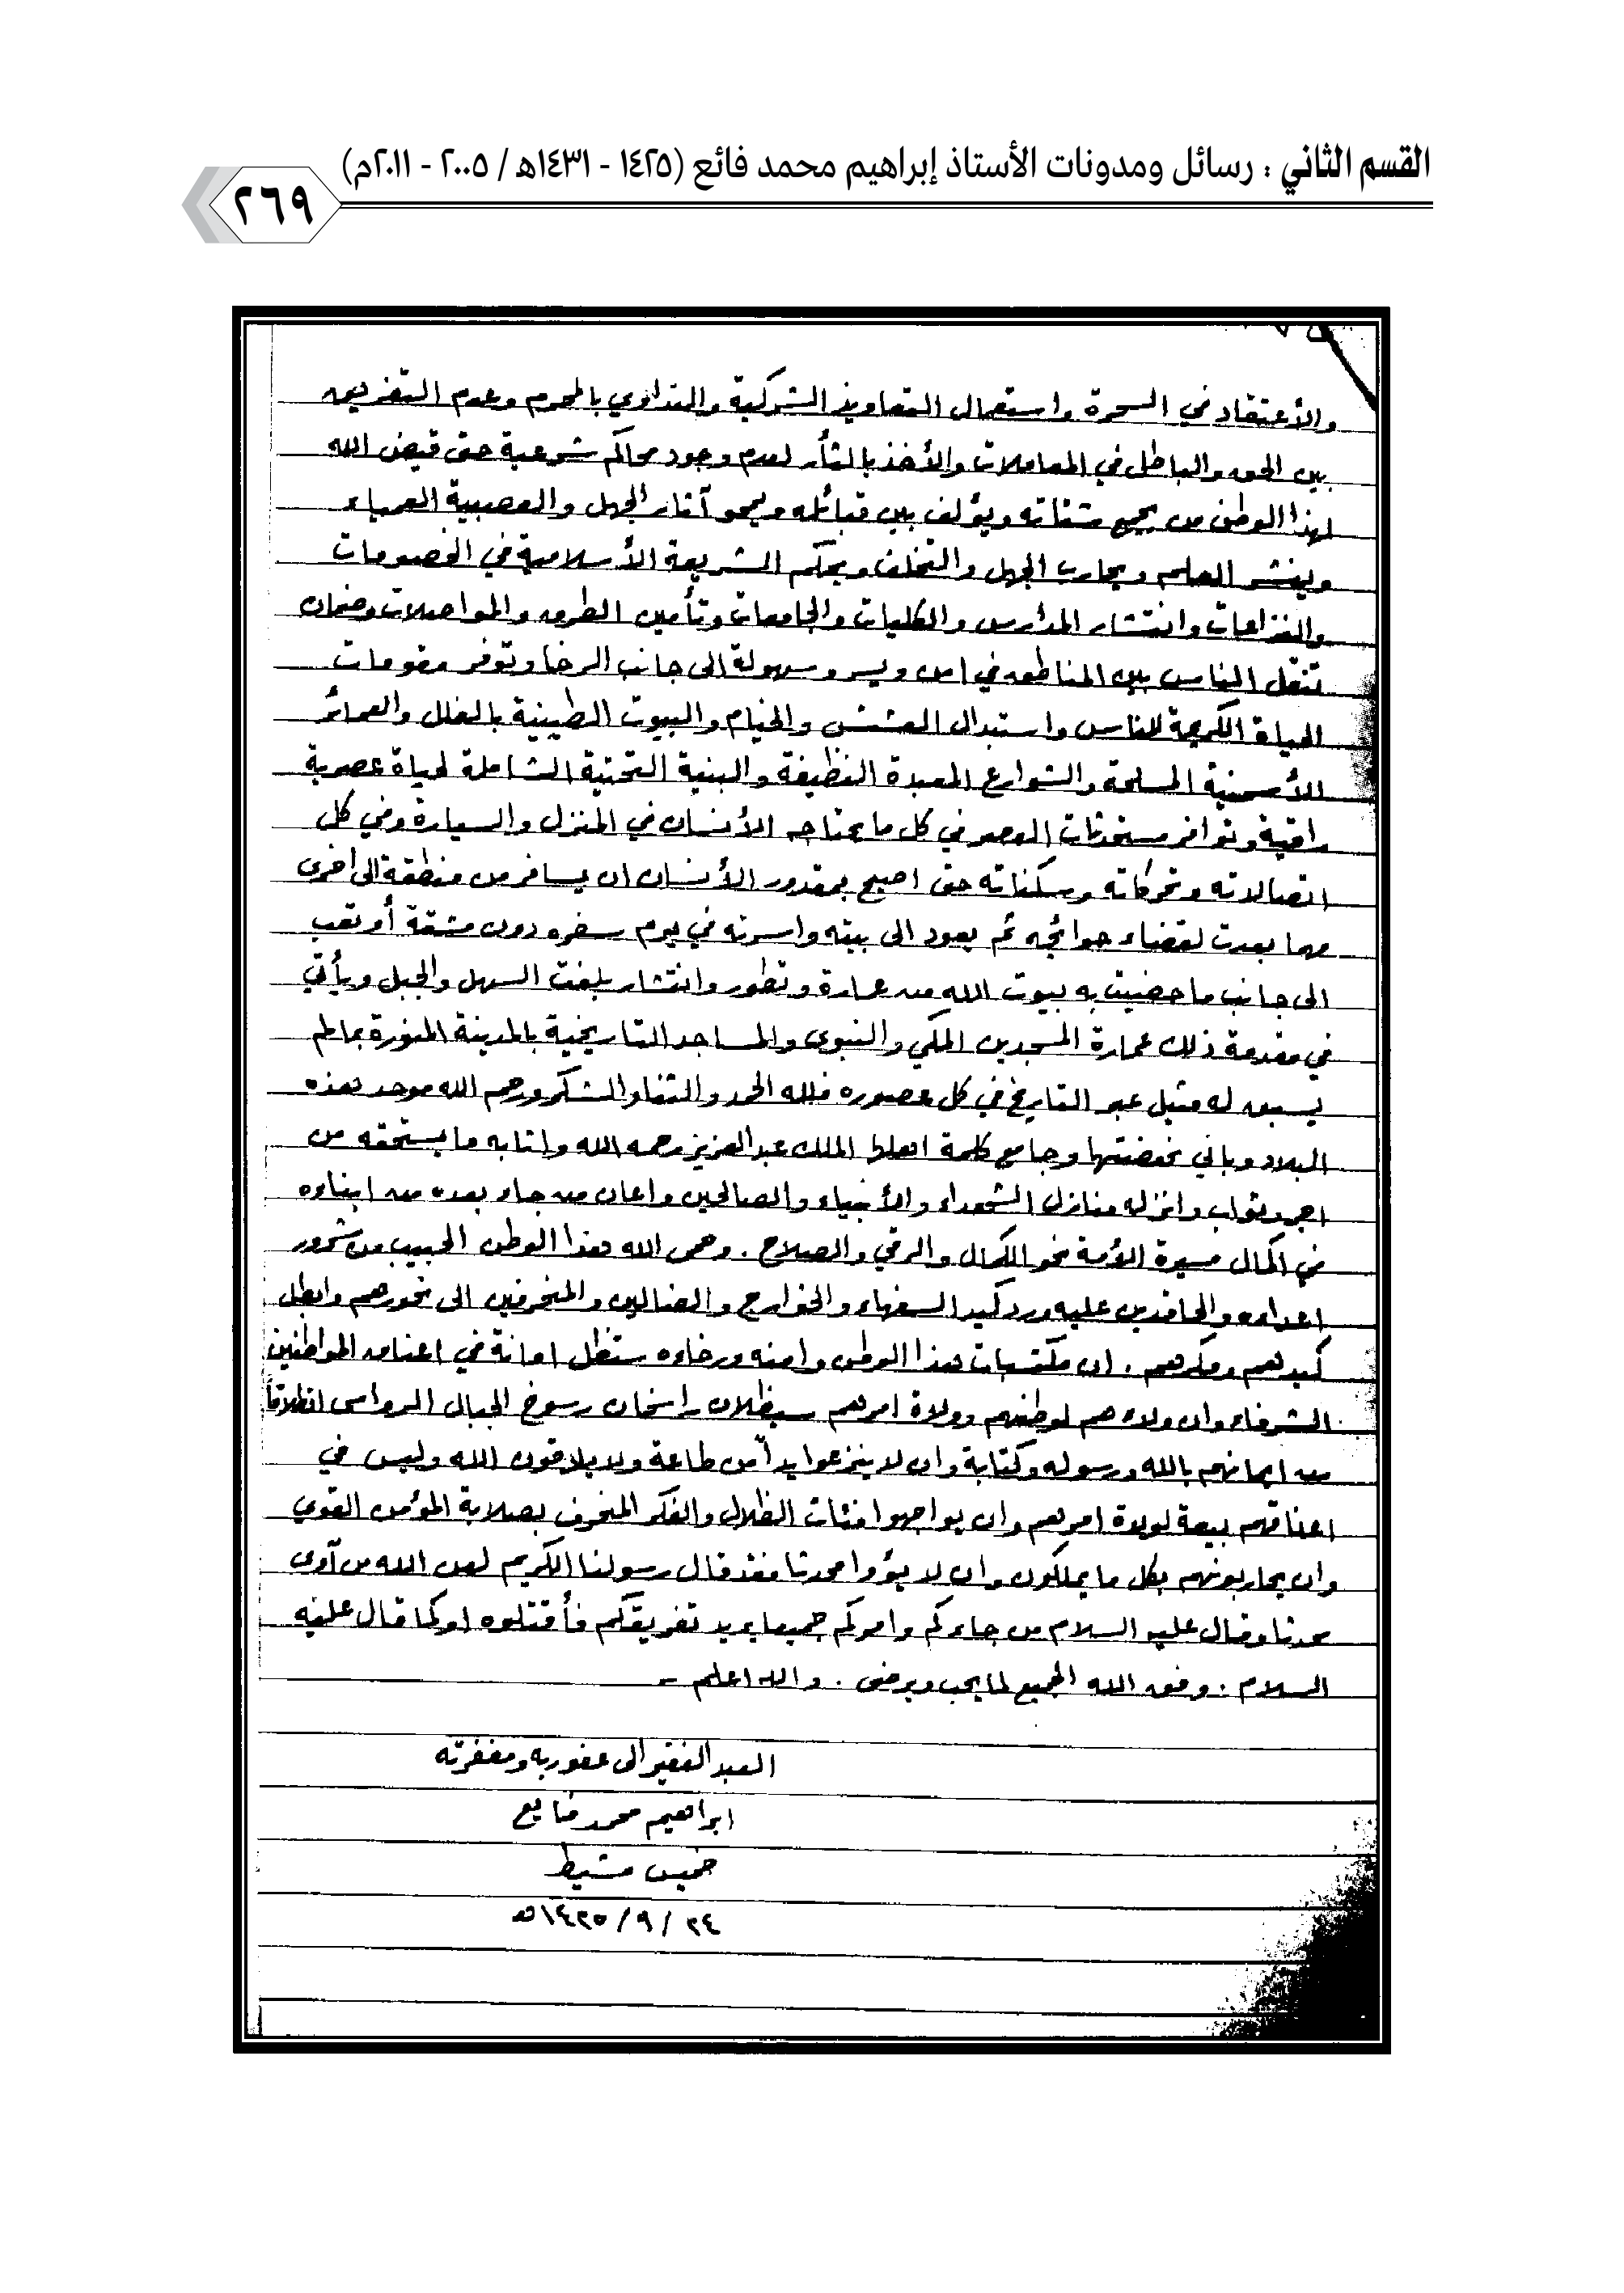 القسم الثاني : رسائل ومدونات الأستاذ إبراهيم محمد فائع (١٤٢٥ - ١٤٣١هـ / ٢٠٠٥ - ٢٠١١م)
٢٦٩
والأعتقاد في السحرة واستعمال التعاويذ الشركية والتداوي بالمحرم وعدم التفريق
بين الحق والباطل في المعاملات والأخذ بالثأر لعدم وجود محاكم شرعية حتى قيض الله
لهذا الوطن من يجمع شتاته ويؤلف بين قبائله ويمحو آثار الجهل والعصبية العمياء
وينشر العلم ويحارب الجهل والتخلف ويحكم الشريعة الأسلامية في الخصومات
والنزاعات وانتشار المدارس والكليات والجامعات وتأمين الطرق والمواصلات وضمان
تنقل الناس بين المناطق في امن ويسر وسهولة الى جانب الرخا وتوفر مقومات
الحياة الكريمة للناس واستبدال العشش والخيام والبيوت الطينية بالفلل والعمائر
الأسمنية المسلحة والشوارع المعبدة النظيفة والبنية التحتية الشاملة لحياة عصرية
راقية وتوافر مستحدثات العصر في كل ما يحتاجه الأنسان في المنزل والسيارة وفي كل
اتصالاته وتحركاته وسكناته حتى اصبح بمقدور الأنسان ان يسافر من منطقة الى اخرى
مهما بعدت لقضاء حوائجه ثم يعود الى بيته واسرته في يوم سفره دون مشقة أو تعب
الى جانب ما حضيت به بيوت الله من عمارة وتطور وانتشار بلغت السهل والجبل ويأتي
في مقدمة ذلك عمارة المسجدين المكي والنبوي والمساجد التاريخية بالمدينة المنورة بما لم
يسبق له مثيل عبر التاريخ في كل عصوره فلله الحمد والثنا والشكر ورحم الله موحد هذه
البلاد وباني نهضتها وجامع كلمة اهلها الملك عبدالعزيز رحمه الله واثابه ما يستحقه من
اجر وثواب وانزله منازل الشهداء والأنبياء والصالحين واعان من جاء بعده من ابناءه
في اكمال مسيرة الأمة نحو الكمال والرقي والصلاح . وحمى الله هذا الوطن الحبيب من شرور
اعداءه والحاقدين عليه ورد كيد السفهاء والخوارج والضالين والمنحرفين الى نحورهم وابطل
كيدهم ومكرهم . ان مكتسبات هذا الوطن وامنه ورخاءه ستظل امانة في اعناق المواطنين
الشرفاء وان ولاءهم لوطنهم وولاة امرهم سيظلان راسخان رسوخ الجبال الرواسى انطلاقاً
من ايمانهم بالله ورسوله وكتابة وان لا ينزعوا يداً من طاعة ولا يلاقون الله وليس في
اعناقهم بيعة لولاة امرهم وان يواجهوا فئات الظلال والفكر المنحرف بصلابة المؤمن القوي
وان يحاربونهم بكل ما يملكون وان لا يؤوا محدثا فقد قال رسولنا الكريم لعن الله من آوى
محدثا وقال عليه السلام من جاءكم وامركم جميعا يريد تفريقكم فأقتلوه او كما قال عليه
السلام . وفق الله الجميع لما يحب ويرضى . والله اعلم –
العبد الفقير الى عفو ربه ومغفرته
ابراهيم محمد فايع
خميس مشيط
٢٤ / ٩ / ١٤٢٥هـ